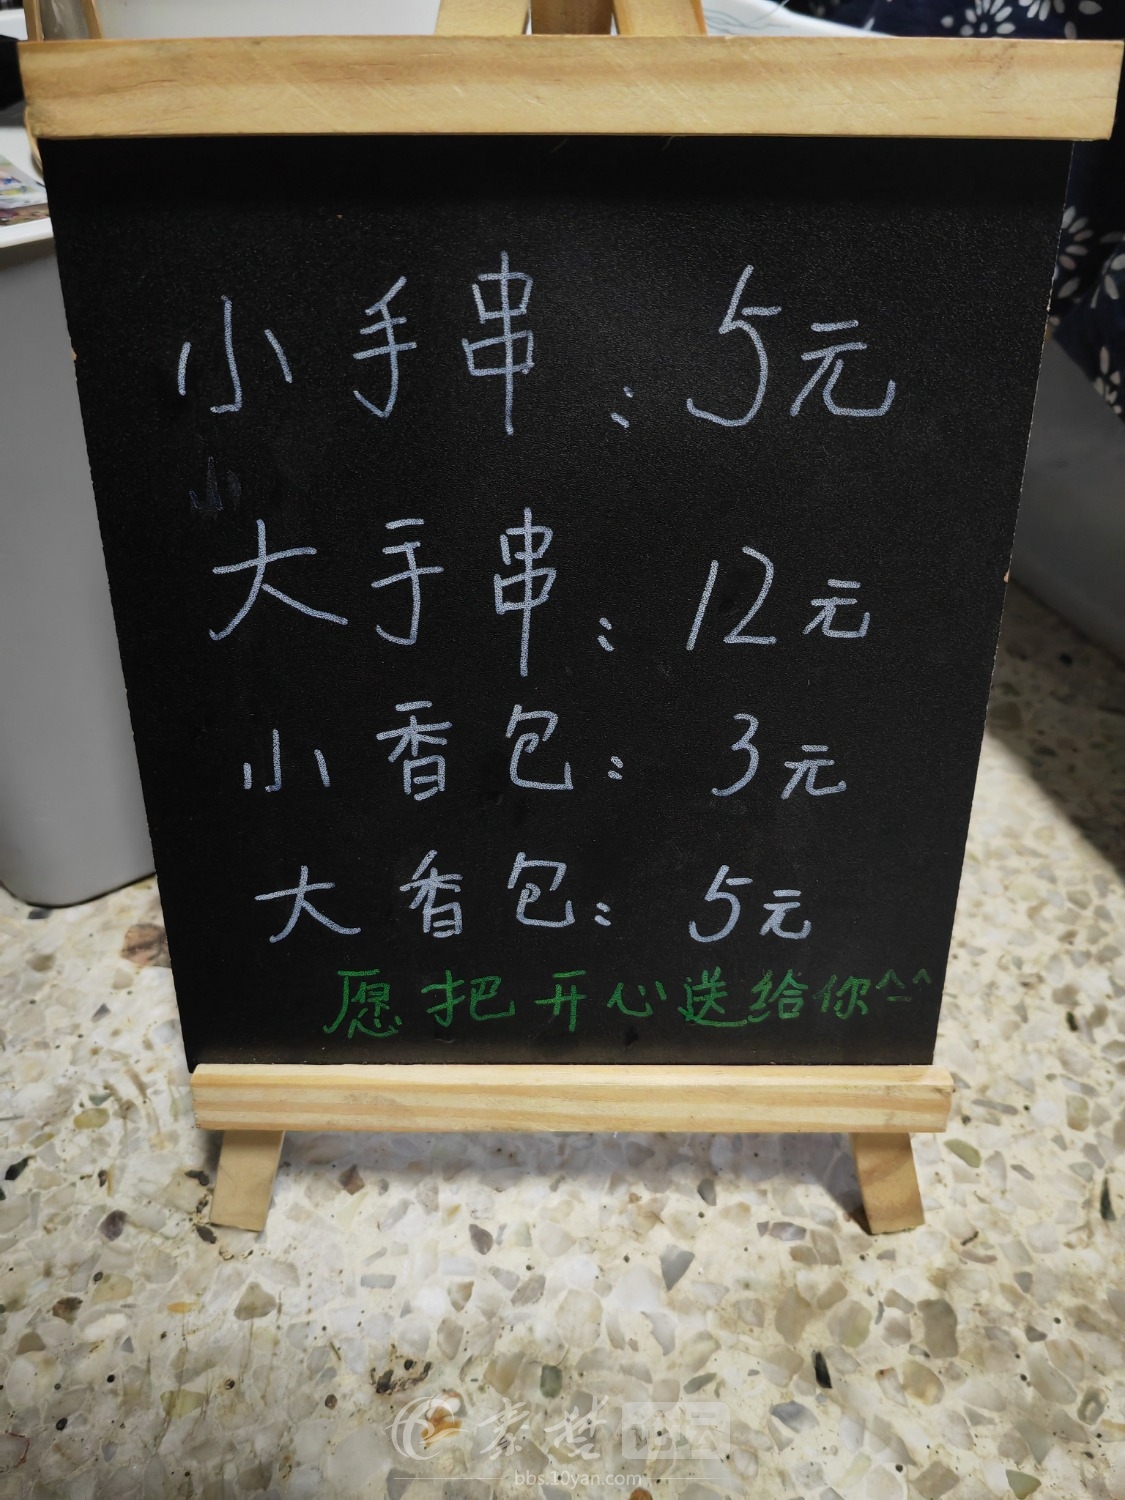 小手串：5元
大手串：12元
小香包：3元
大香包：5元
愿把开心送给你^_^
bbs.10yan.com